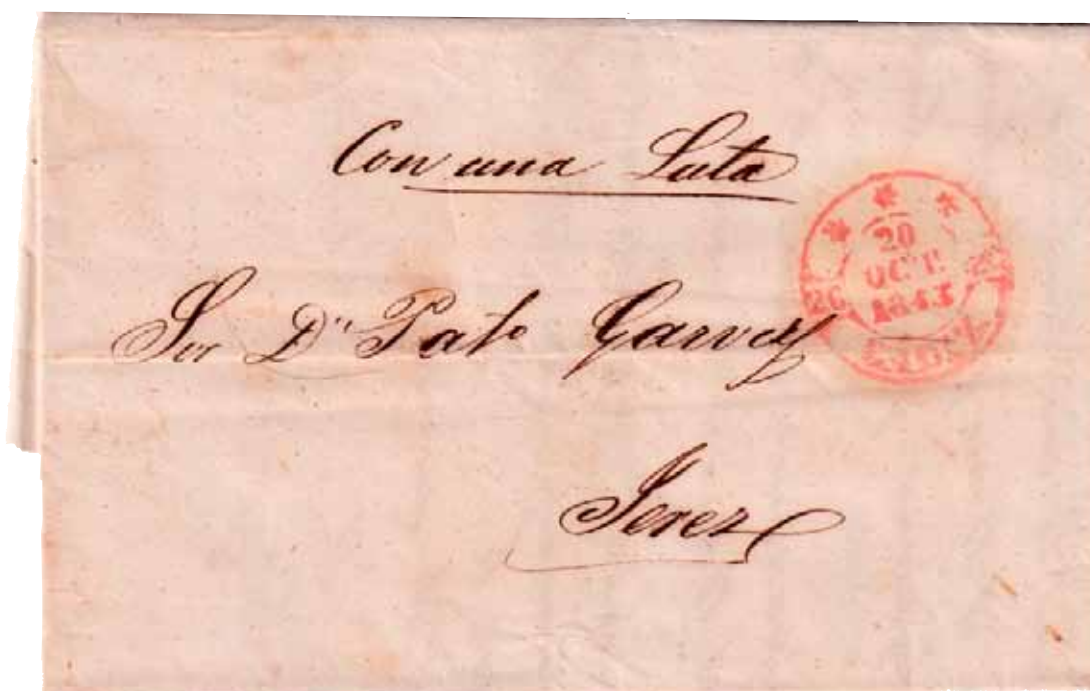 Con una Lata
20
OCT.
1843
Sor Dn Pato Garvey
Jerez